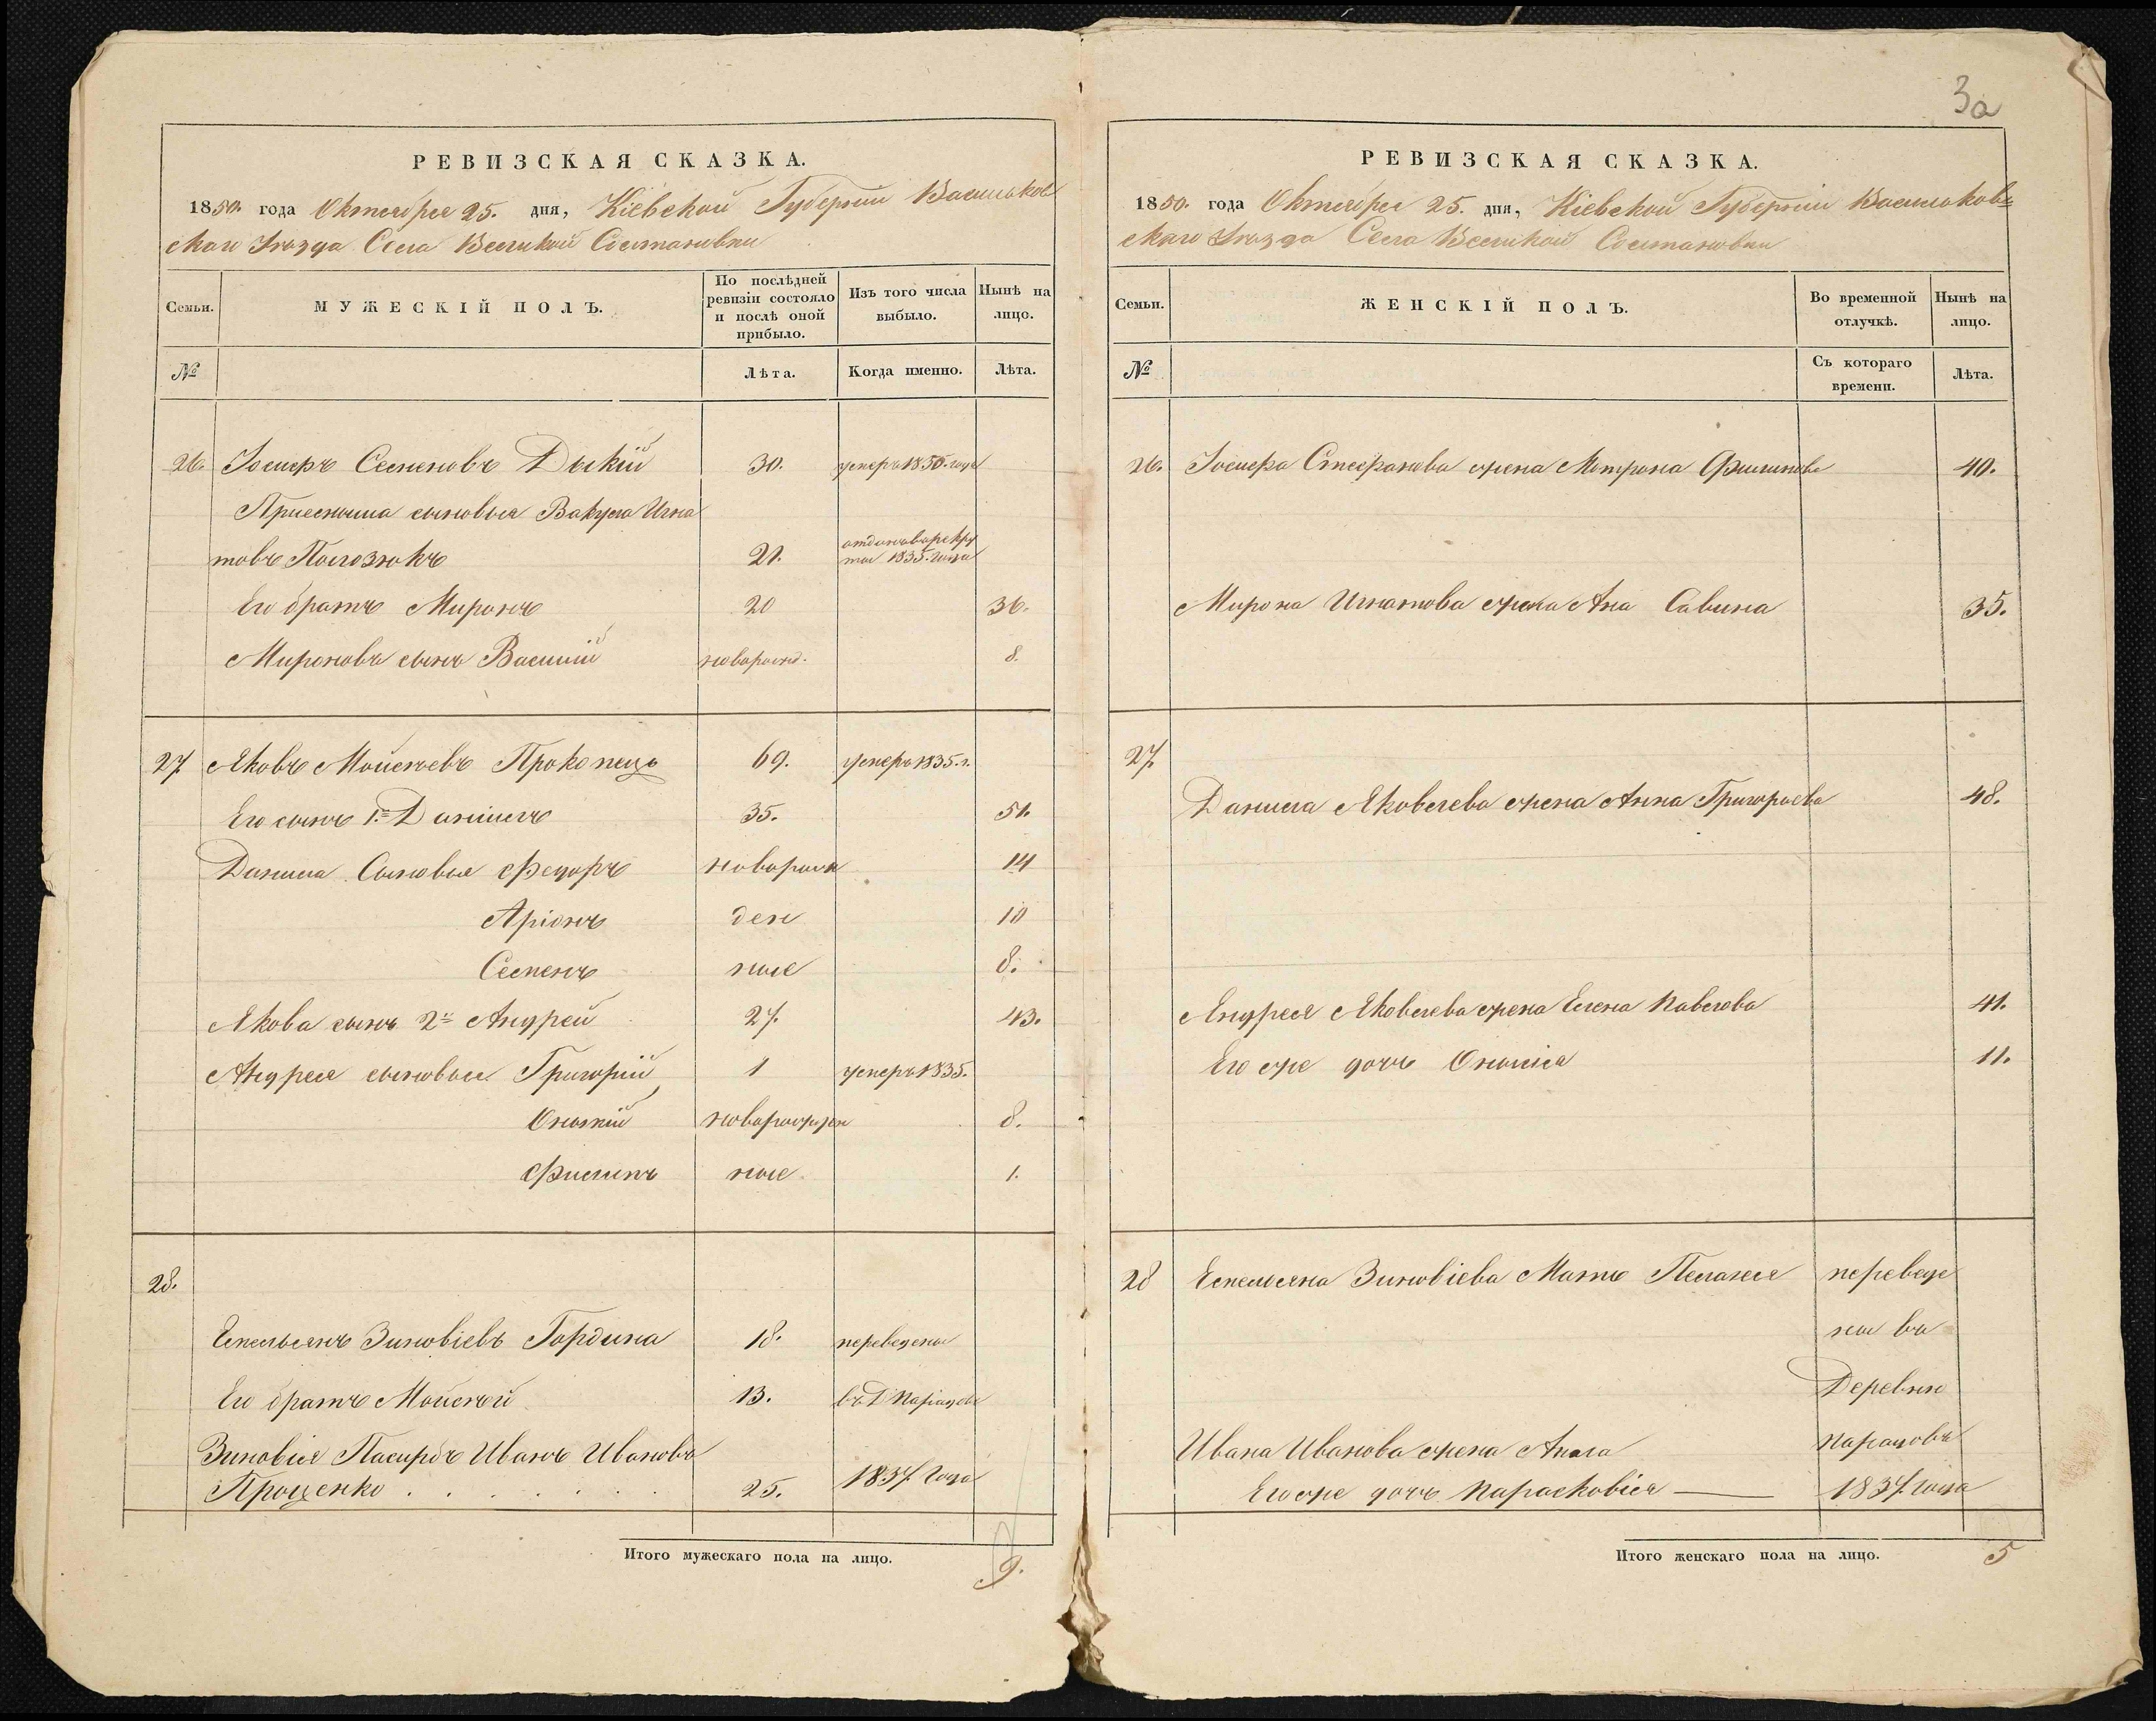 3а
РЕВИЗСКАЯ СКАЗКА.
1850. года Октября 25. дня, Кіевской Губерніи Васильков
скаго Уѣзда Села Великой Солтановки
Семьи. МУЖЕСКІЙ ПОЛЪ. По послѣдней ревизіи состояло и послѣ оной прибыло. Изъ того числа выбыло. Нынѣ на лицо.
№ Лѣта. Когда именно. Лѣта.
26. Іосифъ Семеновъ Дыкій 30. умеръ 1850. года
Приемыша сыновья Вакула Игна
товъ Погозюкъ 21. отданъ в рекру
ты 1835. года
Его братъ Миронъ 20 36.
Миронова сынъ Василій новорожд. 8.
27. Яковъ Мойсеевъ Прокопецъ 69. умеръ 1835. г.
Его сынъ 1.й Даніилъ 35. 51.
Данила Сыновья Федоръ новорож 14
Аріонъ ден 10
Семенъ ные 8.
Якова сынъ 2й Андрей 27. 43.
Андрея сыновья Григорій 1 умеръ 1835.
новорожден 8.
Филипъ ные. 1.
28.
Емельянъ Зиновіевъ Гордина 18. переведены
Его братъ Мойсей 13. въ Д
Зиновія Пасирбъ Иванъ Ивановъ
Проценко . . . . . . 25. 1837. Года
Итого мужескаго пола на лицо. 9.
РЕВИЗСКАЯ СКАЗКА.
1850. года Октября 25. дня, Кіевской Губерніи Васильков=
скаго Уѣзда Села Великой Солтановки
Семьи. ЖЕНСКІЙ ПОЛЪ. Во временной отлучкѣ. Нынѣ на лицо.
№ Съ котораго времени. Лѣта.
26. Іосифа Стефанова жена Мотрона Филипова 40.
Мирона Игнатова жена Ана Савина 35.
27.
Данила Яковлева жена Анна Григорьева 48.
Андрея Яковлева жена Елена Павлова 41.
Его же дочь Онисія 11.
28 Емельяна Зиновіева Мать Пелагея переведе
ны въ
Деревню
Ивана Иванова жена
Его же дочь Парасковія — 1837. года
Итого женскаго пола на лицо. 5